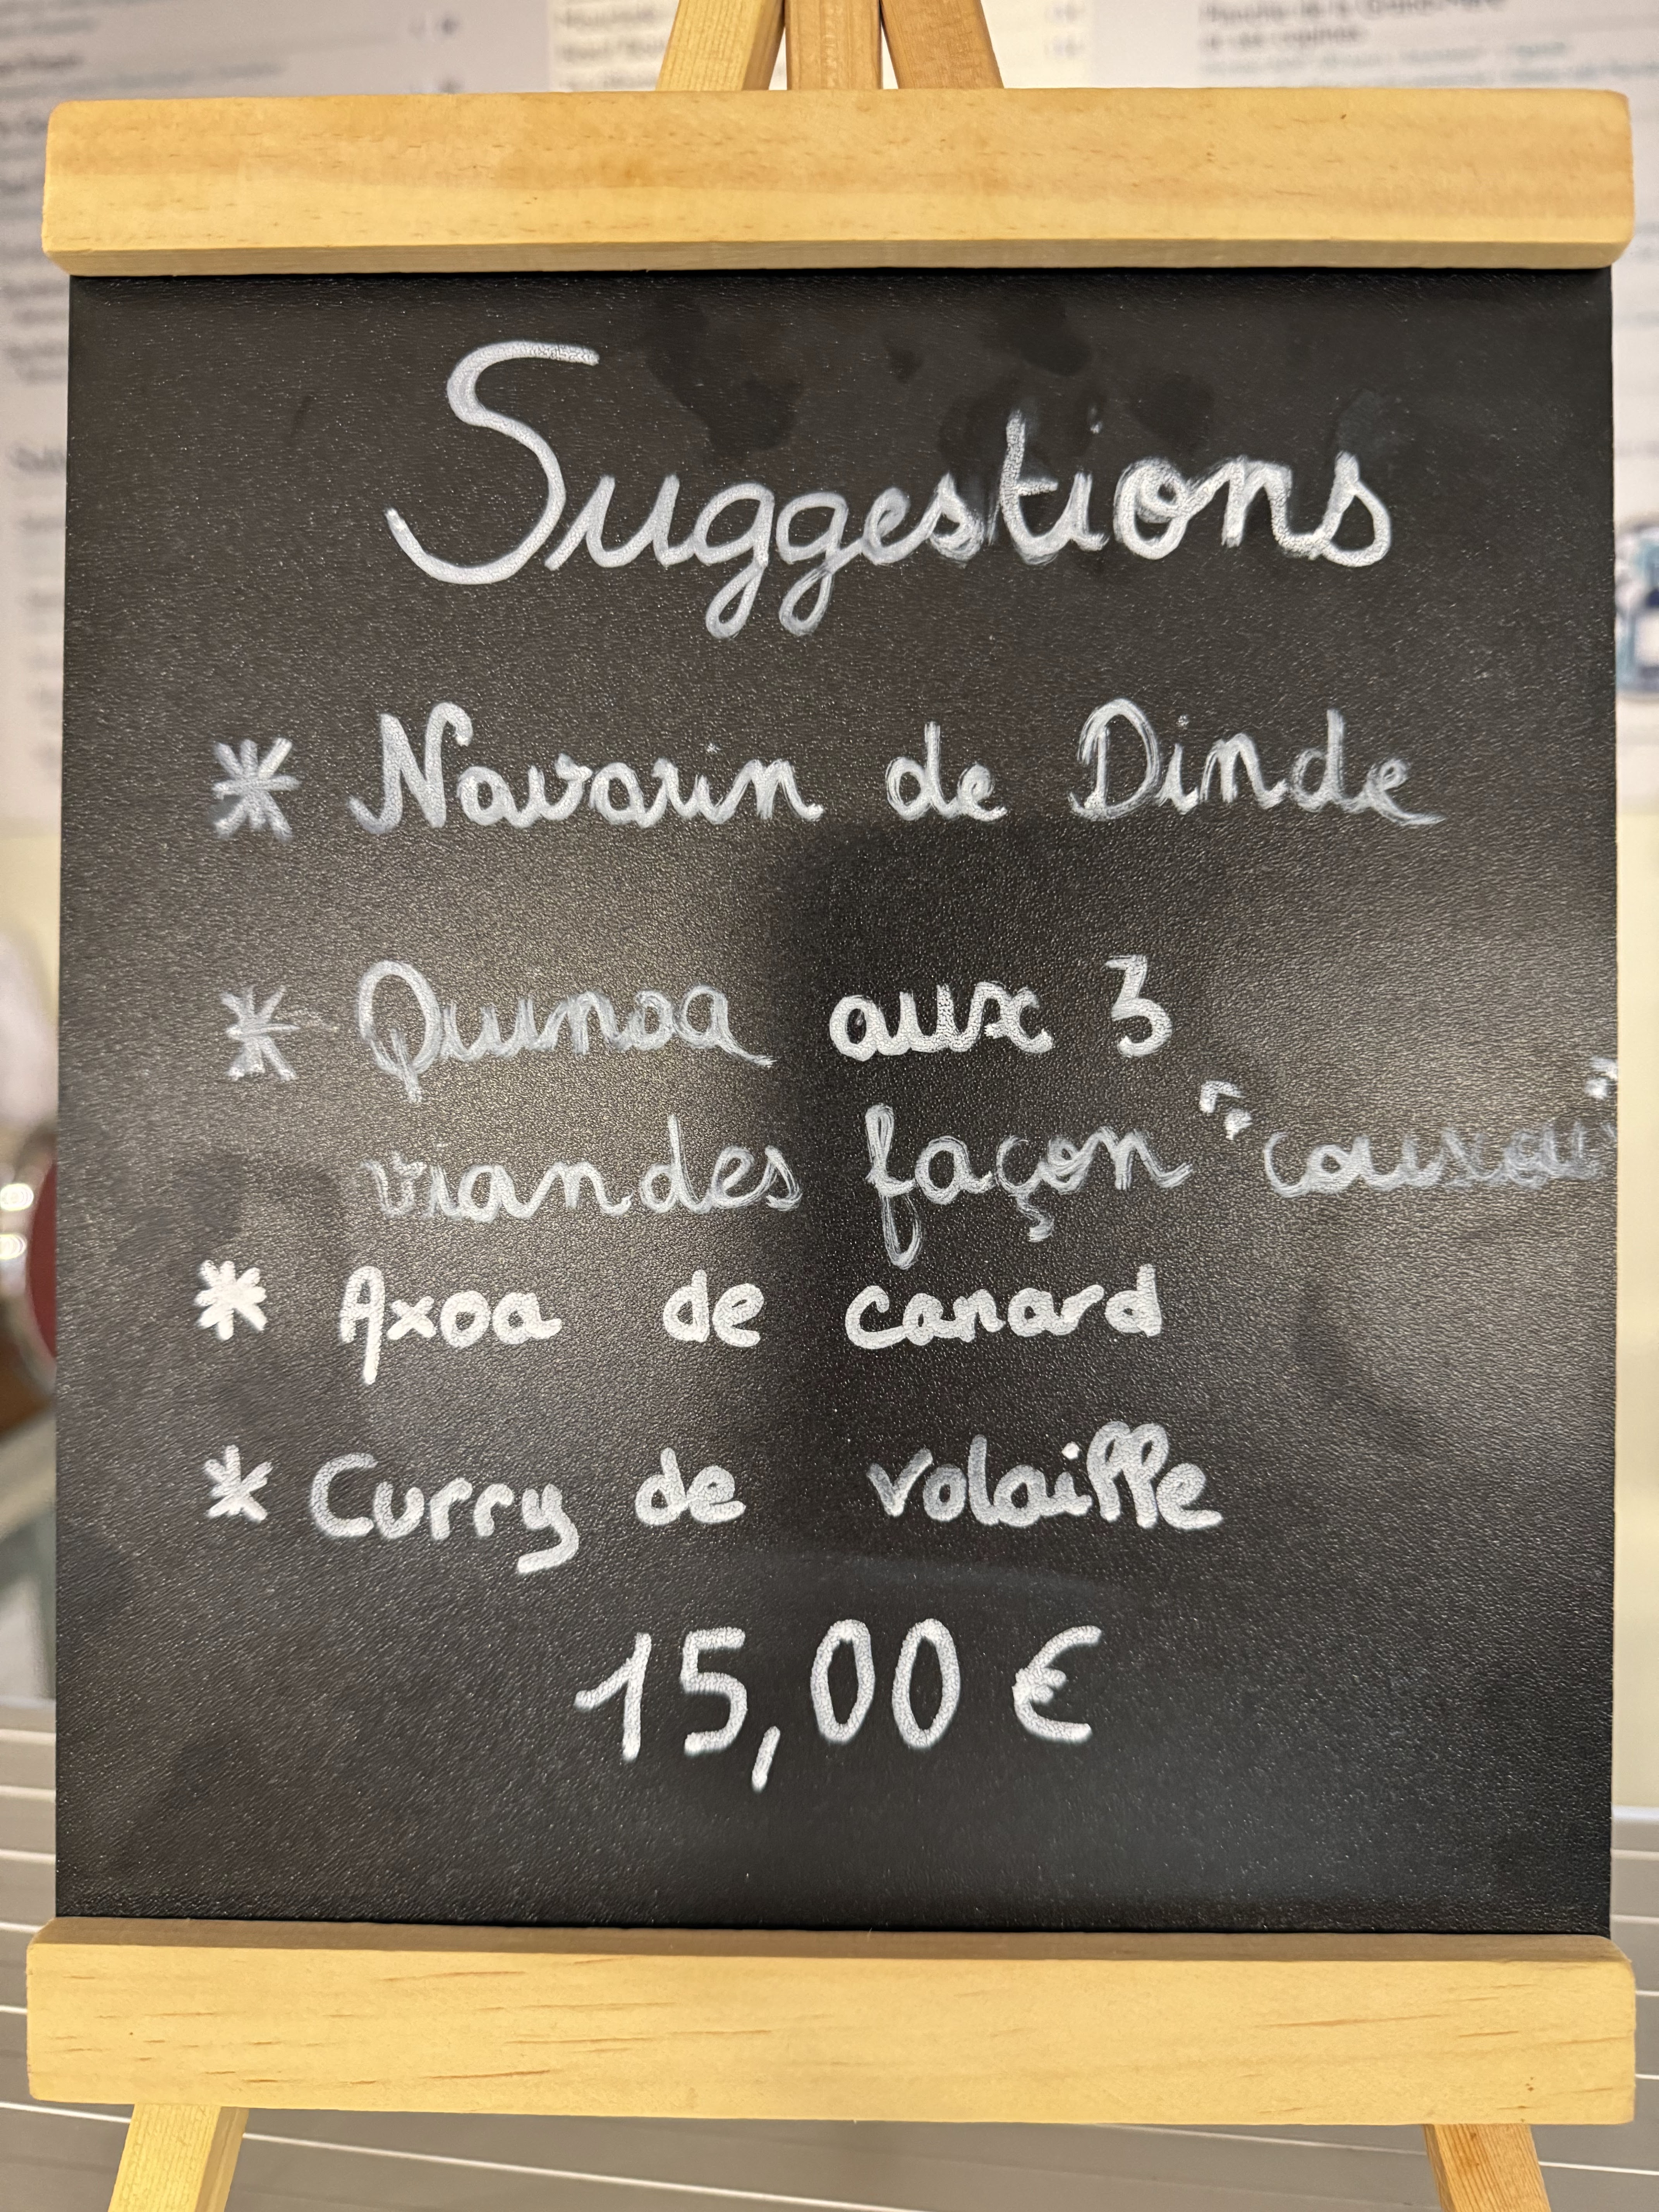 Suggestions
* Navarin de Dinde
* Quinoa aux 3
viandes façon
* Axoa de canard
* Curry de volaille
15,00 €